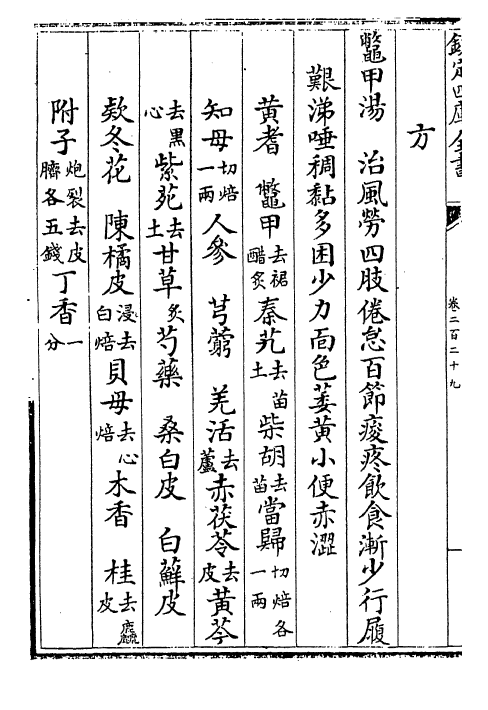 欽定四庫全書
卷二百二十九
方
鼈甲湯 治風勞四肢倦怠百節痠疼飲食漸少行履
艱涕唾稠黏多困少力面色萎黄小便赤澀
黄耆 鼈甲去裙醋炙 秦艽去苗土 柴胡去苗 當歸切焙各一兩
知母切焙一兩 人參 芎藭 羌活去蘆 赤茯苓去皮 黄芩
去黑心 紫苑去土 甘草炙 芍藥 桑白皮 白蘚皮
欵冬花 陳橘皮浸去白焙 貝母去心焙 木香 桂去麤皮
附子炮裂去皮臍各五錢 丁香一分